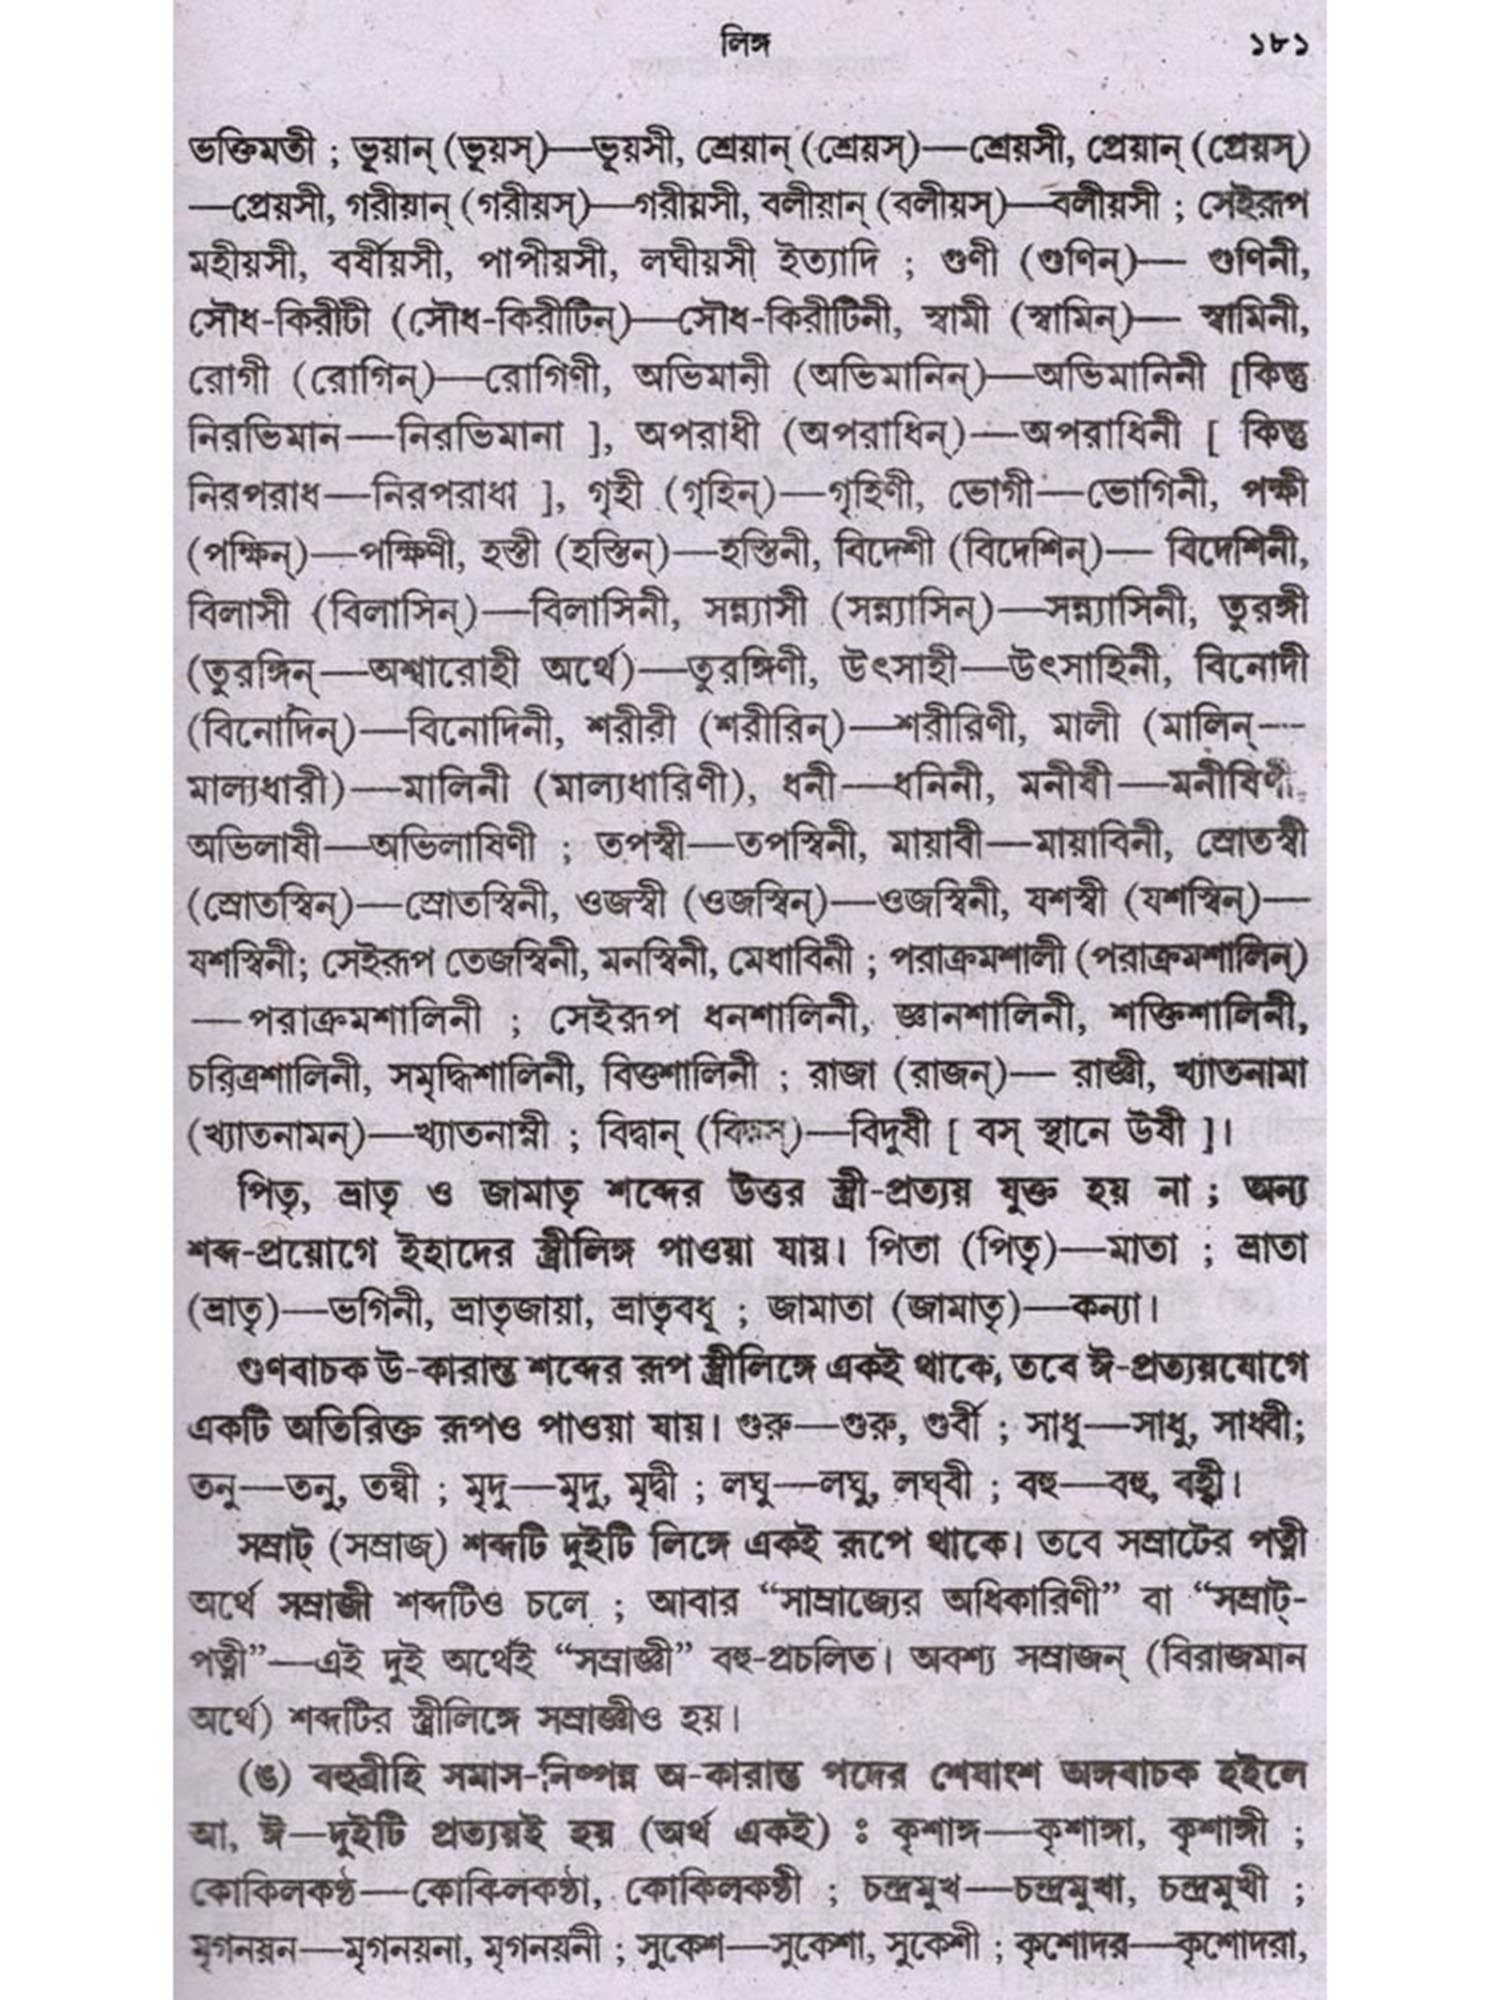 লিঙ্গ ১৮১
ভক্তিমতী ; ভূয়ান্ (ভূয়স্)—ভূয়সী, শ্রেয়ান্ (শ্রেয়স্)—শ্রেয়সী, প্রেয়ান্ (প্রেয়স্)
—প্রেয়সী, গরীয়ান্ (গরীয়স্)—গরীয়সী, বলীয়ান্ (বলীয়স্)—বলীয়সী ; সেইরূপ
মহীয়সী, বর্ষীয়সী, পাপীয়সী, লঘীয়সী ইত্যাদি ; গুণী (গুণিন্)— গুণিনী,
সৌধ-কিরীটী (সৌধ-কিরীটিন্)—সৌধ-কিরীটিনী, স্বামী (স্বামিন্)— স্বামিনী,
রোগী (রোগিন্)—রোগিণী, অভিমানী (অভিমানিন্)—অভিমানিনী [কিন্তু
নিরভিমান—নিরভিমানা ], অপরাধী (অপরাধিন্)—অপরাধিনী [ কিন্তু
নিরপরাধ—নিরপরাধা ], গৃহী (গৃহিন্)—গৃহিণী, ভোগী—ভোগিনী, পক্ষী
(পক্ষিন্)—পক্ষিণী, হস্তী (হস্তিন্)—হস্তিনী, বিদেশী (বিদেশিন্)— বিদেশিনী,
বিলাসী (বিলাসিন্)—বিলাসিনী, সন্ন্যাসী (সন্ন্যাসিন্)—সন্ন্যাসিনী, তুরঙ্গী
(তুরঙ্গিন্—অশ্বারোহী অর্থে)—তুরঙ্গিণী, উৎসাহী—উৎসাহিনী, বিনোদী
(বিনোদিন্)—বিনোদিনী, শরীরী (শরীরিন্)—শরীরিণী, মালী (মালিন্—
মাল্যধারী)—মালিনী (মাল্যধারিণী), ধনী—ধনিনী, মনীষী—মনীষিণী,
অভিলাষী—অভিলাষিণী ; তপস্বী—তপস্বিনী, মায়াবী—মায়াবিনী, স্রোতস্বী
(স্রোতস্বিন্)—স্রোতস্বিনী, ওজস্বী (ওজস্বিন্)—ওজস্বিনী, যশস্বী (যশস্বিন্)—
যশস্বিনী; সেইরূপ তেজস্বিনী, মনস্বিনী, মেধাবিনী ; পরাক্রমশালী (পরাক্রমশালিন্)
—পরাক্রমশালিনী ; সেইরূপ ধনশালিনী, জ্ঞানশালিনী, শক্তিশালিনী,
চরিত্রশালিনী, সমৃদ্ধিশালিনী, বিত্তশালিনী ; রাজা (রাজন্)— রাজ্ঞী, খ্যাতনামা
(খ্যাতনামন্)—খ্যাতনাম্নী ; বিদ্বান্ (বিদ্বস্)—বিদুষী [ বস্ স্থানে উষী ]।
পিতৃ, ভ্রাতৃ ও জামাতৃ শব্দের উত্তর স্ত্রী-প্রত্যয় যুক্ত হয় না ; অন্য
শব্দ-প্রয়োগে ইহাদের স্ত্রীলিঙ্গ পাওয়া যায়। পিতা (পিতৃ)—মাতা ; ভ্রাতা
(ভ্রাতৃ)—ভগিনী, ভ্রাতৃজায়া, ভ্রাতৃবধূ ; জামাতা (জামাতৃ)—কন্যা।
গুণবাচক উ-কারান্ত শব্দের রূপ স্ত্রীলিঙ্গে একই থাকে, তবে ঈ-প্রত্যয়যোগে
একটি অতিরিক্ত রূপও পাওয়া যায়। গুরু—গুরু, গুর্বী ; সাধু—সাধু, সাধ্বী;
তনু—তনু, তন্বী ; মৃদু—মৃদু, মৃদ্বী ; লঘু—লঘু, লঘ্বী ; বহু—বহু, বহ্বী।
সম্রাট্ (সম্রাজ্) শব্দটি দুইটি লিঙ্গে একই রূপে থাকে। তবে সম্রাটের পত্নী
অর্থে সম্রাজী শব্দটিও চলে ; আবার “সাম্রাজ্যের অধিকারিণী” বা “সম্রাট্-
পত্নী”—এই দুই অর্থেই “সম্রাজ্ঞী” বহু-প্রচলিত। অবশ্য সম্রাজন্ (বিরাজমান
অর্থে) শব্দটির স্ত্রীলিঙ্গে সম্রাজ্ঞীও হয়।
(ঙ) বহুব্রীহি সমাস-নিষ্পন্ন অ-কারান্ত পদের শেষাংশ অঙ্গবাচক হইলে
আ, ঈ—দুইটি প্রত্যয়ই হয় (অর্থ একই) : কৃশাঙ্গ—কৃশাঙ্গা, কৃশাঙ্গী ;
কোকিলকণ্ঠ—কোকিলকণ্ঠা, কোকিলকণ্ঠী ; চন্দ্রমুখ—চন্দ্রমুখা, চন্দ্রমুখী ;
মৃগনয়ন—মৃগনয়না, মৃগনয়নী ; সুকেশ—সুকেশা, সুকেশী ; কৃশোদর—কৃশোদরা,